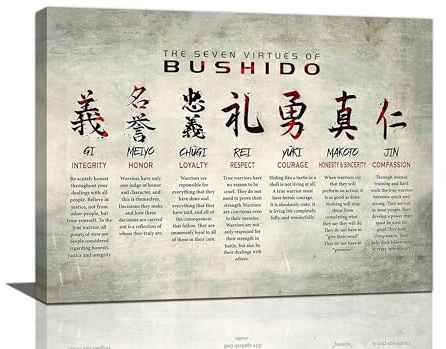 THE SEVEN VIRTUES OF
BUSHIDO
義
名誉
忠義
礼
勇
真
仁
GI
MEIYO
CHŪGI
REI
YŪKI
MAKOTO
JIN
INTEGRITY
HONOR
LOYALTY
RESPECT
COURAGE
HONESTY & SINCERITY
COMPASSION
Be acutely honest
throughout your
dealings with all
people. Believe in
justice, not from
other people, but
from yourself. To the
true warrior, all
points of view are
deeply considered
regarding honesty,
justice and integrity
Warriors have only
one judge of honor
and character, and
this is themselves.
Decisions they make
and how these
decisions are carried
out is a reflection of
whom they truly are.
Warriors are
reponsible for
everything that they
have done and
everything that they
have said, and all of
the consequences
that follow. They are
immensely loyal to all
of those in their care.
True warriors have
no reason to be
cruel. They do not
need to prove their
strength. Warriors
are courteous even
to their enemies.
Warriors are not
only respected for
their strength in
battle, but also by
their dealings with
others.
Hiding like a turtle in a
shell is not living at all.
A true warrior must
have heroic courage.
It is absolutely risky. It
is living life completely,
fully, and wonderfully.
When warriors say that
they will perform
an action, it
is as good as done.
Nothing will stop
them from completing
what they say they will
do. They do not
have to
"give their word".
They do not have to
"promise".
Through intense
training and hard
work the true warrior
becomes quick and
strong. They are not
as most people. They
develop a power that
must be used for
good. They have
compassion. They
help their fellow men
at every opportunity.